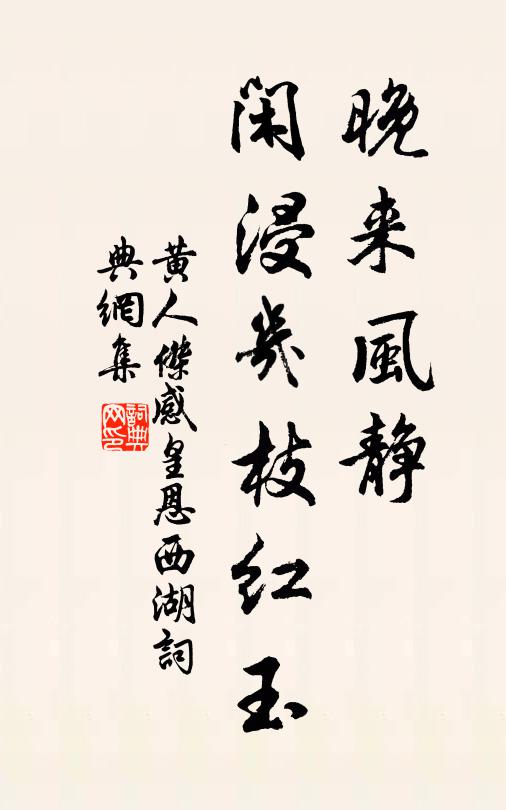 晚来風靜
闲浸幾枝红玉
黄人傑感皇恩西湖詞
典網集
詞典网印